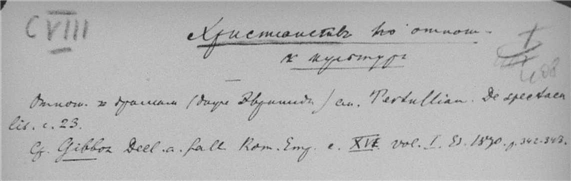 CVIII
Христіанство по отнош.
к культурѣ
Отнош. к драмам (даже Эврипида) см. Tertullian. De spectacu
lis. c. 23.
Cf. Gibbon Decl. a. fall Rom. Emp. c. XVI vol. I. Ed. 1890. p. 342-343.